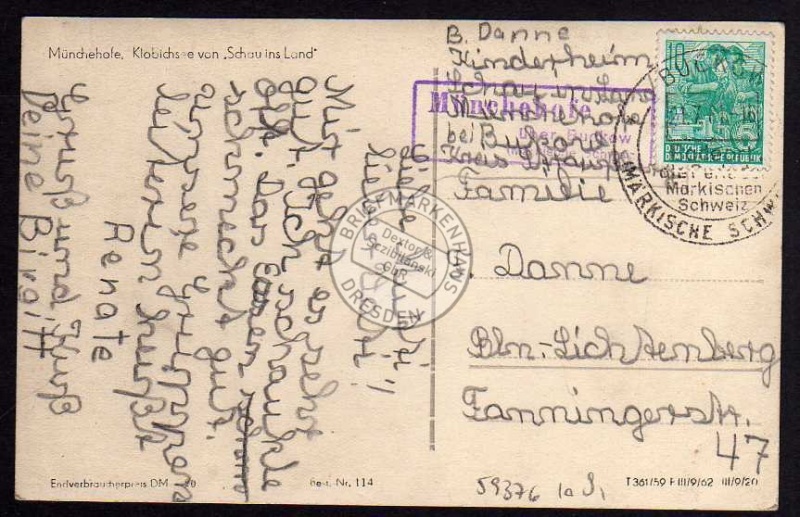 Münchehofe, Klobichsee von „Schau ins Land"
B. Danne
Kinderheim
Schau ins Land
Münchehofe
bei Bukow
Kreis
Münchehofe
über Buckow
10
DEUTSCHE
DEMOKRATISCHE REPUBLIK
BUCKOW
Märkischen
Schweiz
MÄRKISCHE SCHW
Familie
Danne
Bln-Lichtenberg
Fanningerstr.
47
Liebe Mutti
lieber Vati!
Mir geht es sehr
gut. Ich schaukle
oft. Das Essen
schmeckt gut.
unsere Gruppen
leiterin heißt
Renate
Gruß und Kuß
Deine Birgitt
BRIEFMARKENHAUS
Dextop &
Sczibilanski
GbR
DRESDEN
Endverbraucherpreis DM -,20
Best. Nr. 114
59376
T 361/59 F III/9/62 III/9/20